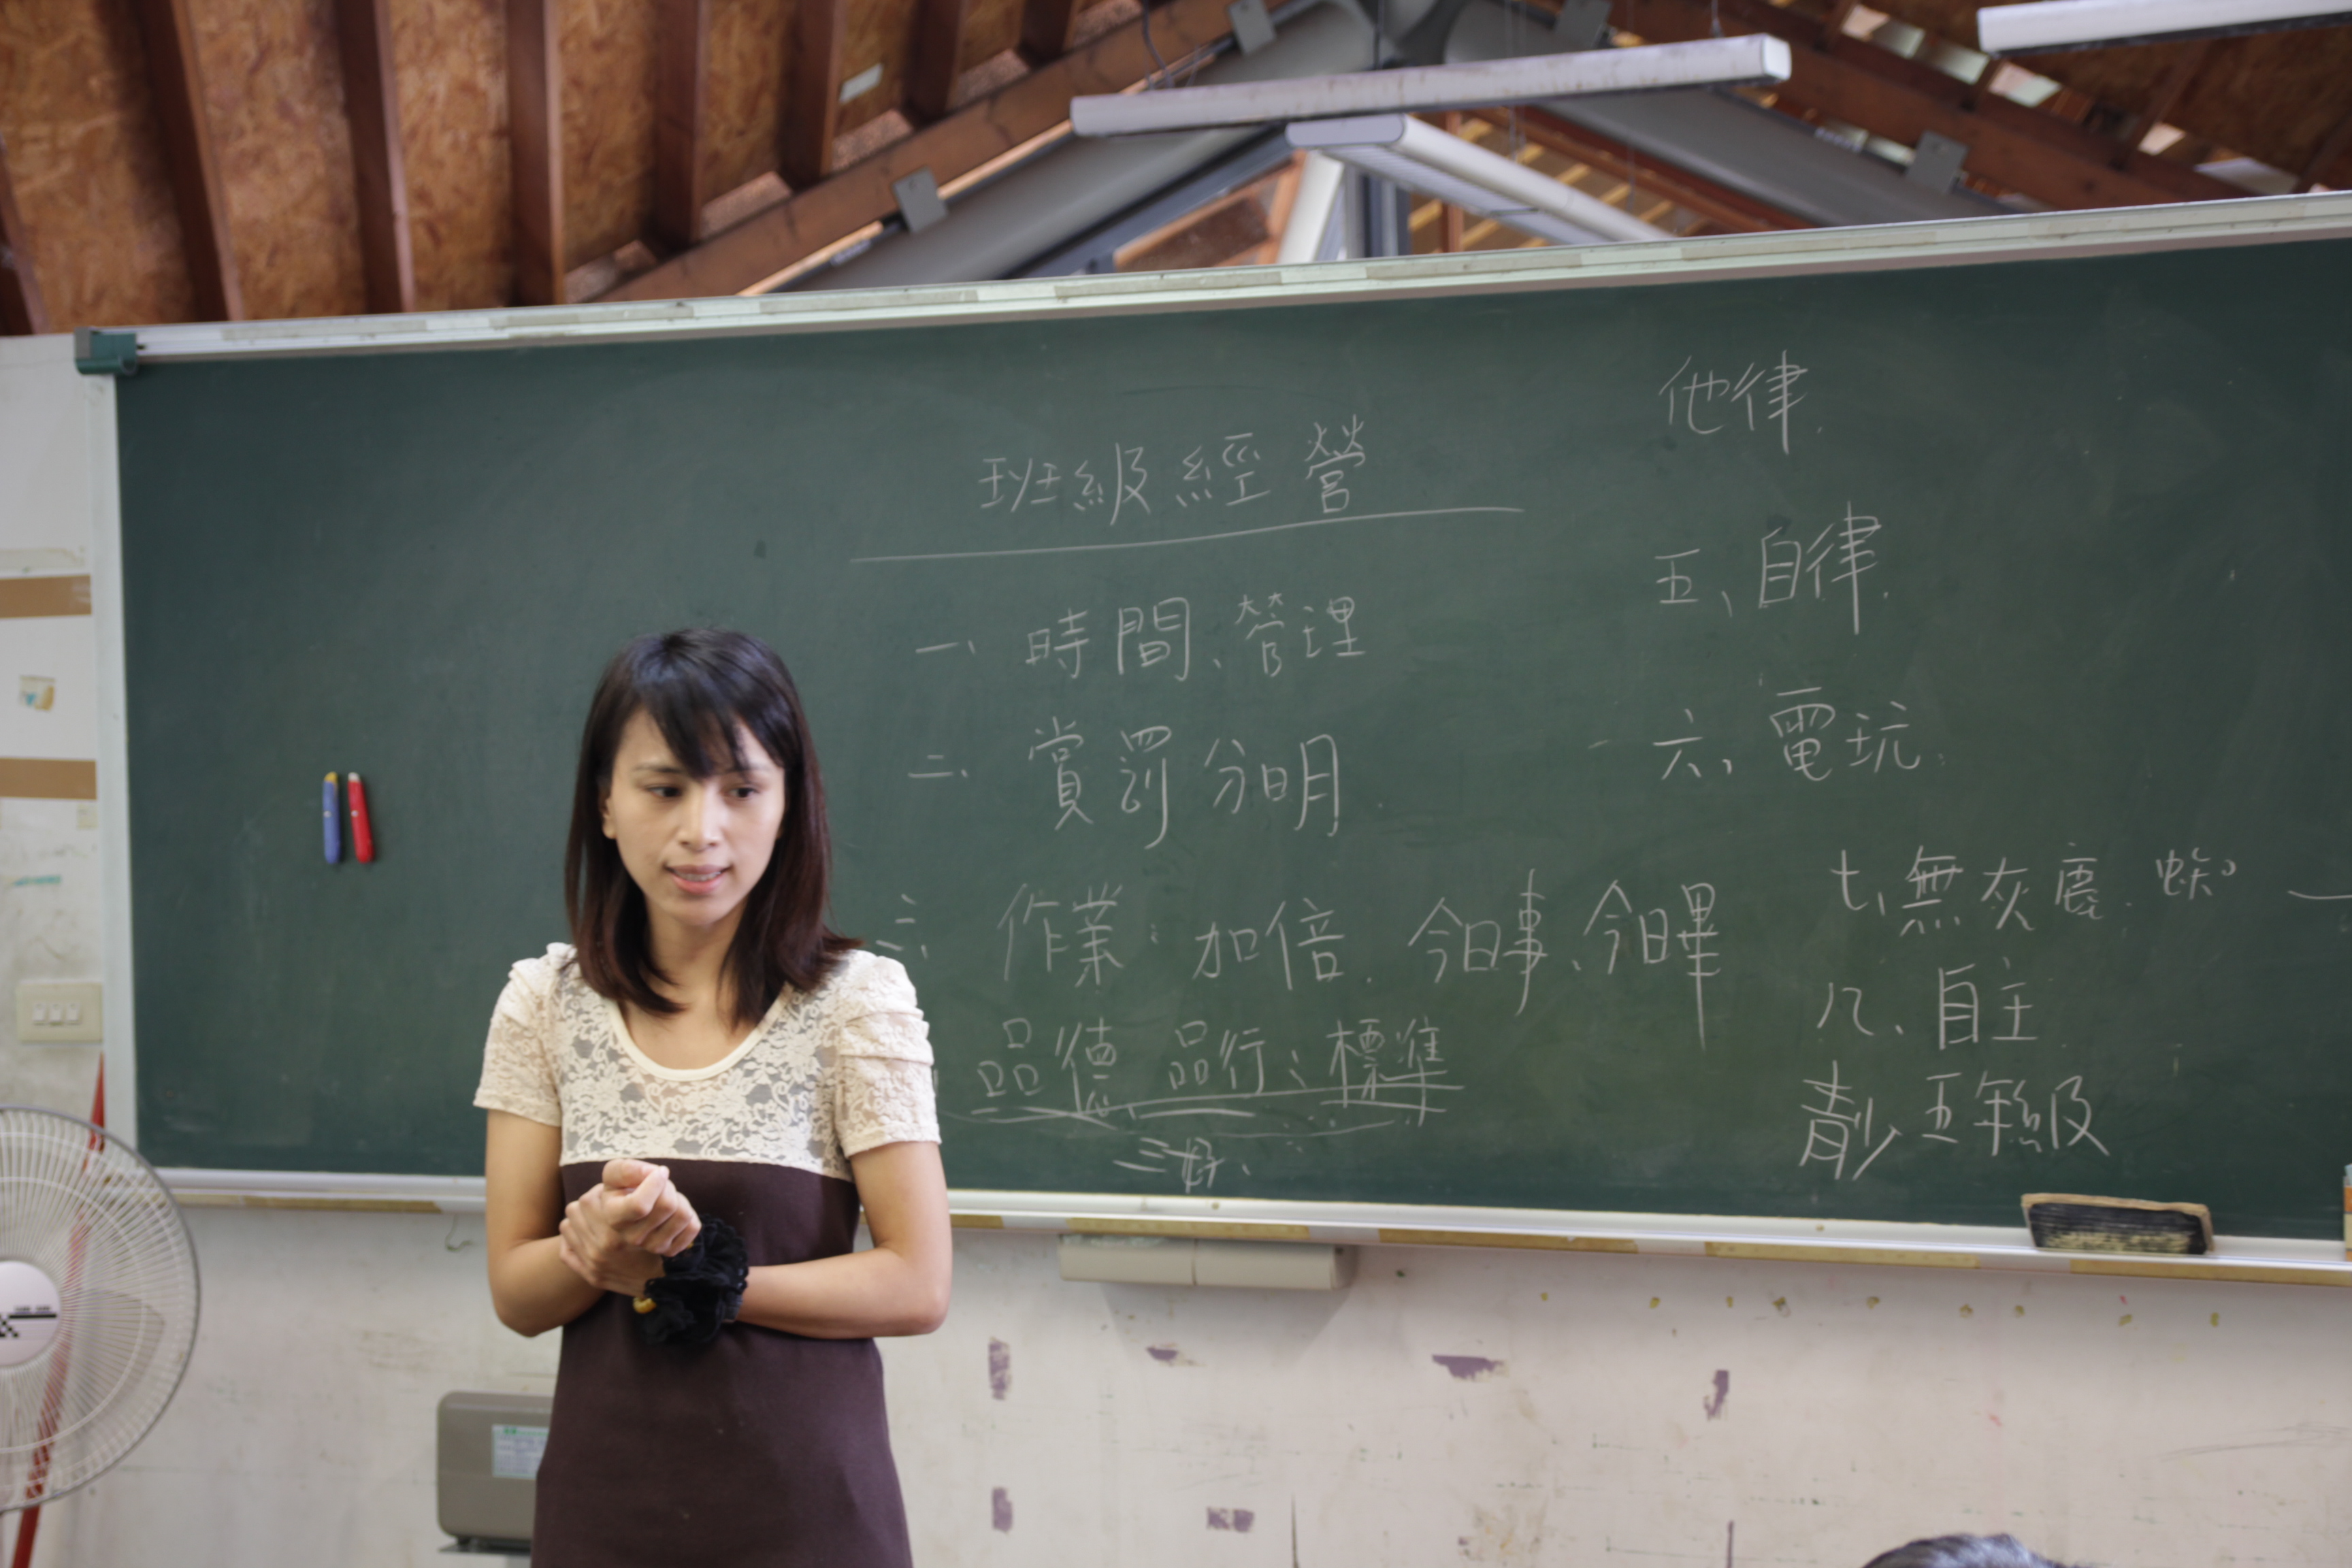 班級經營
一、時間、管理
二、賞罰分明.
三、作業：加倍.今日事、今日畢
品德 品行；標準
三好.
他律.
五、自律.
六、電玩.
七、無灰塵.
八、自主
青少五年級